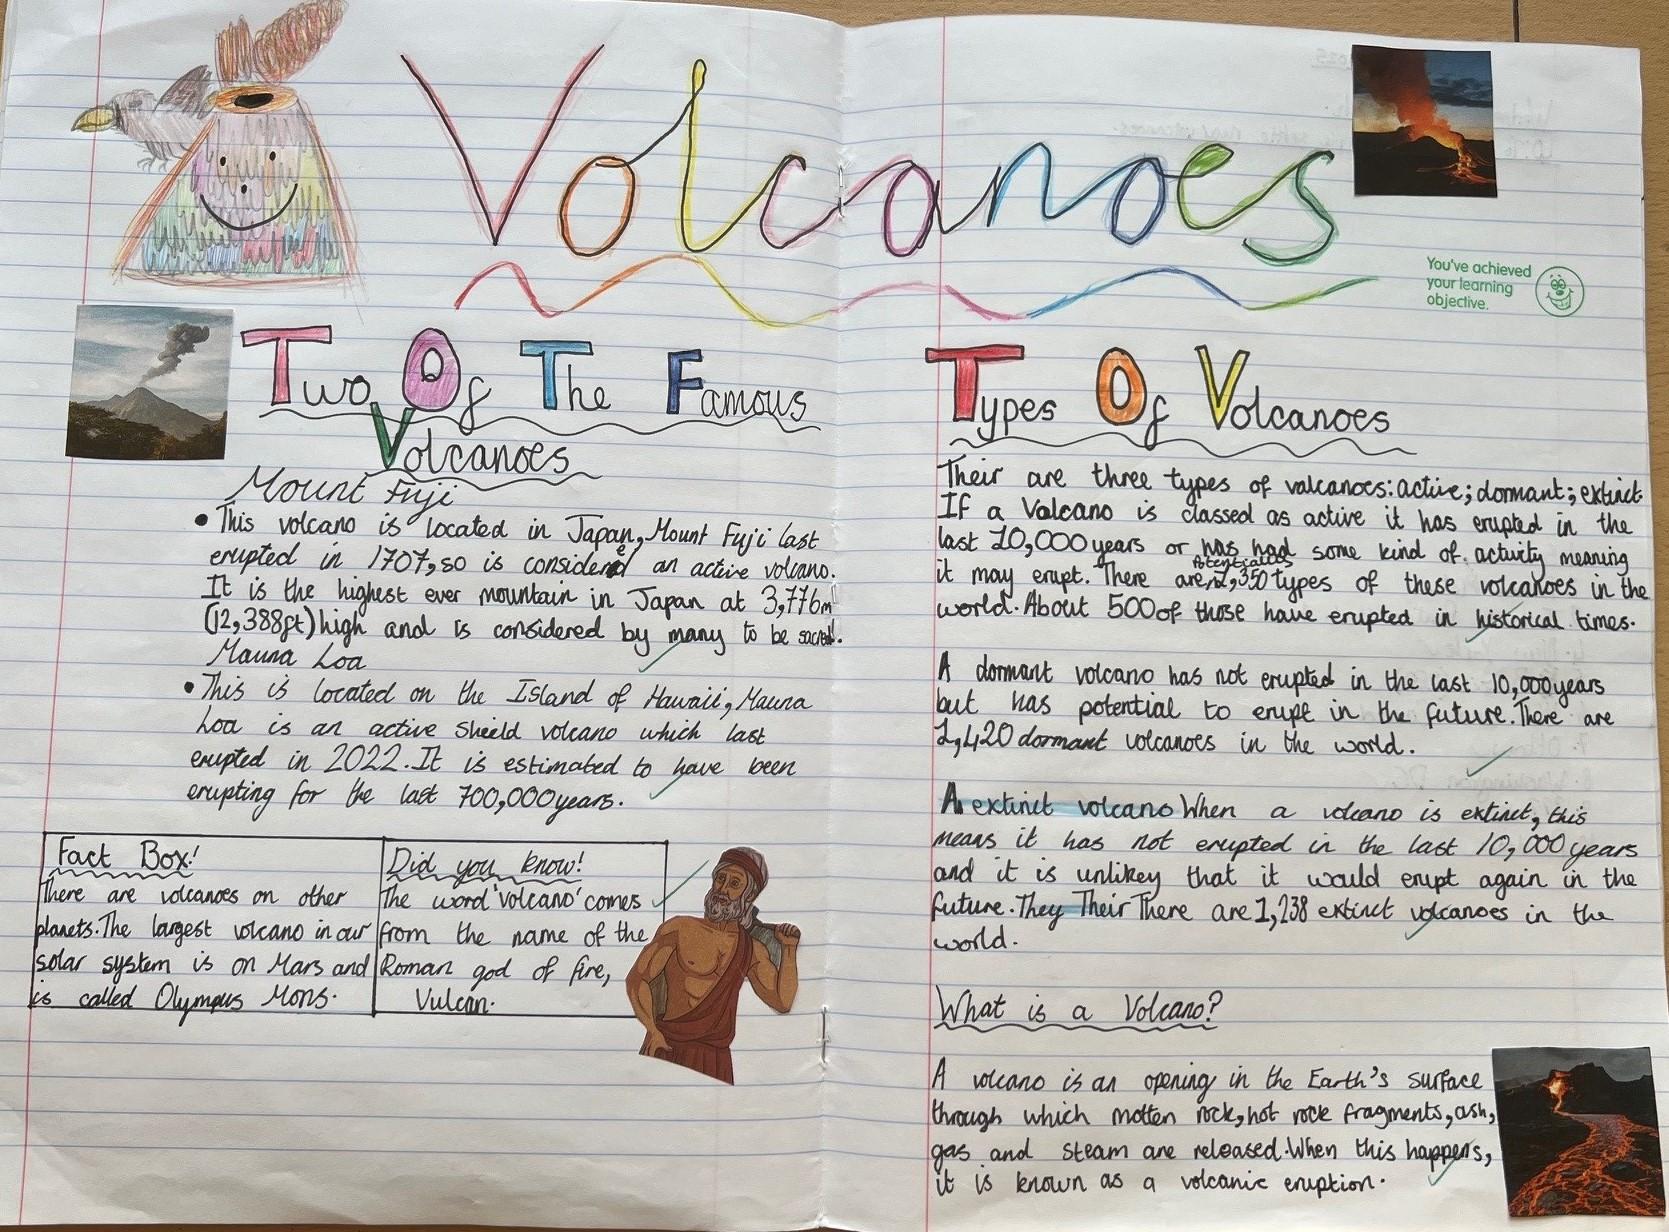 Volcanoes
You've achieved
your learning
objective.
Two Of The Famous
Volcanoes
Mount Fuji
• This volcano is located in Japan, Mount Fuji last
erupted in 1707, so is considered an active volcano.
It is the highest ever mountain in Japan at 3,776m
(12,388ft) high and is considered by many to be sacred.
Mauna Loa
• This is located on the Island of Hawaii, Mauna
Loa is an active Shield volcano which last
erupted in 2022. It is estimated to have been
erupting for the last 700,000 years.
Fact Box!
There are volcanoes on other
planets. The largest volcano in our
solar system is on Mars and
is called Olympus Mons.
Did you know!
The word 'volcano' comes
from the name of the
Roman god of fire,
Vulcan.
Types Of Volcanoes
Their are three types of valcanoes: active; dormant; extinct.
If a Valcano is classed as active it has erupted in the
last 10,000 years or has had some kind of activity meaning
it may erupt. There are 1,350 types of these volcanoes in the
world. About 500 of those have erupted in historical times.
A dormant volcano has not erupted in the last 10,000 years
but has potential to erupt in the future. There are
1,420 dormant volcanoes in the world.
A extinct volcano When a volcano is extinct, this
means it has not erupted in the last 10,000 years
and it is unlikey that it would erupt again in the
future. They Their There are 1,238 extinct volcanoes in the
world.
What is a Volcano?
A volcano is an opening in the Earth's surface
through which molten rock, hot rock fragments, ash,
gas and steam are released. When this happens,
it is known as a volcanic eruption.